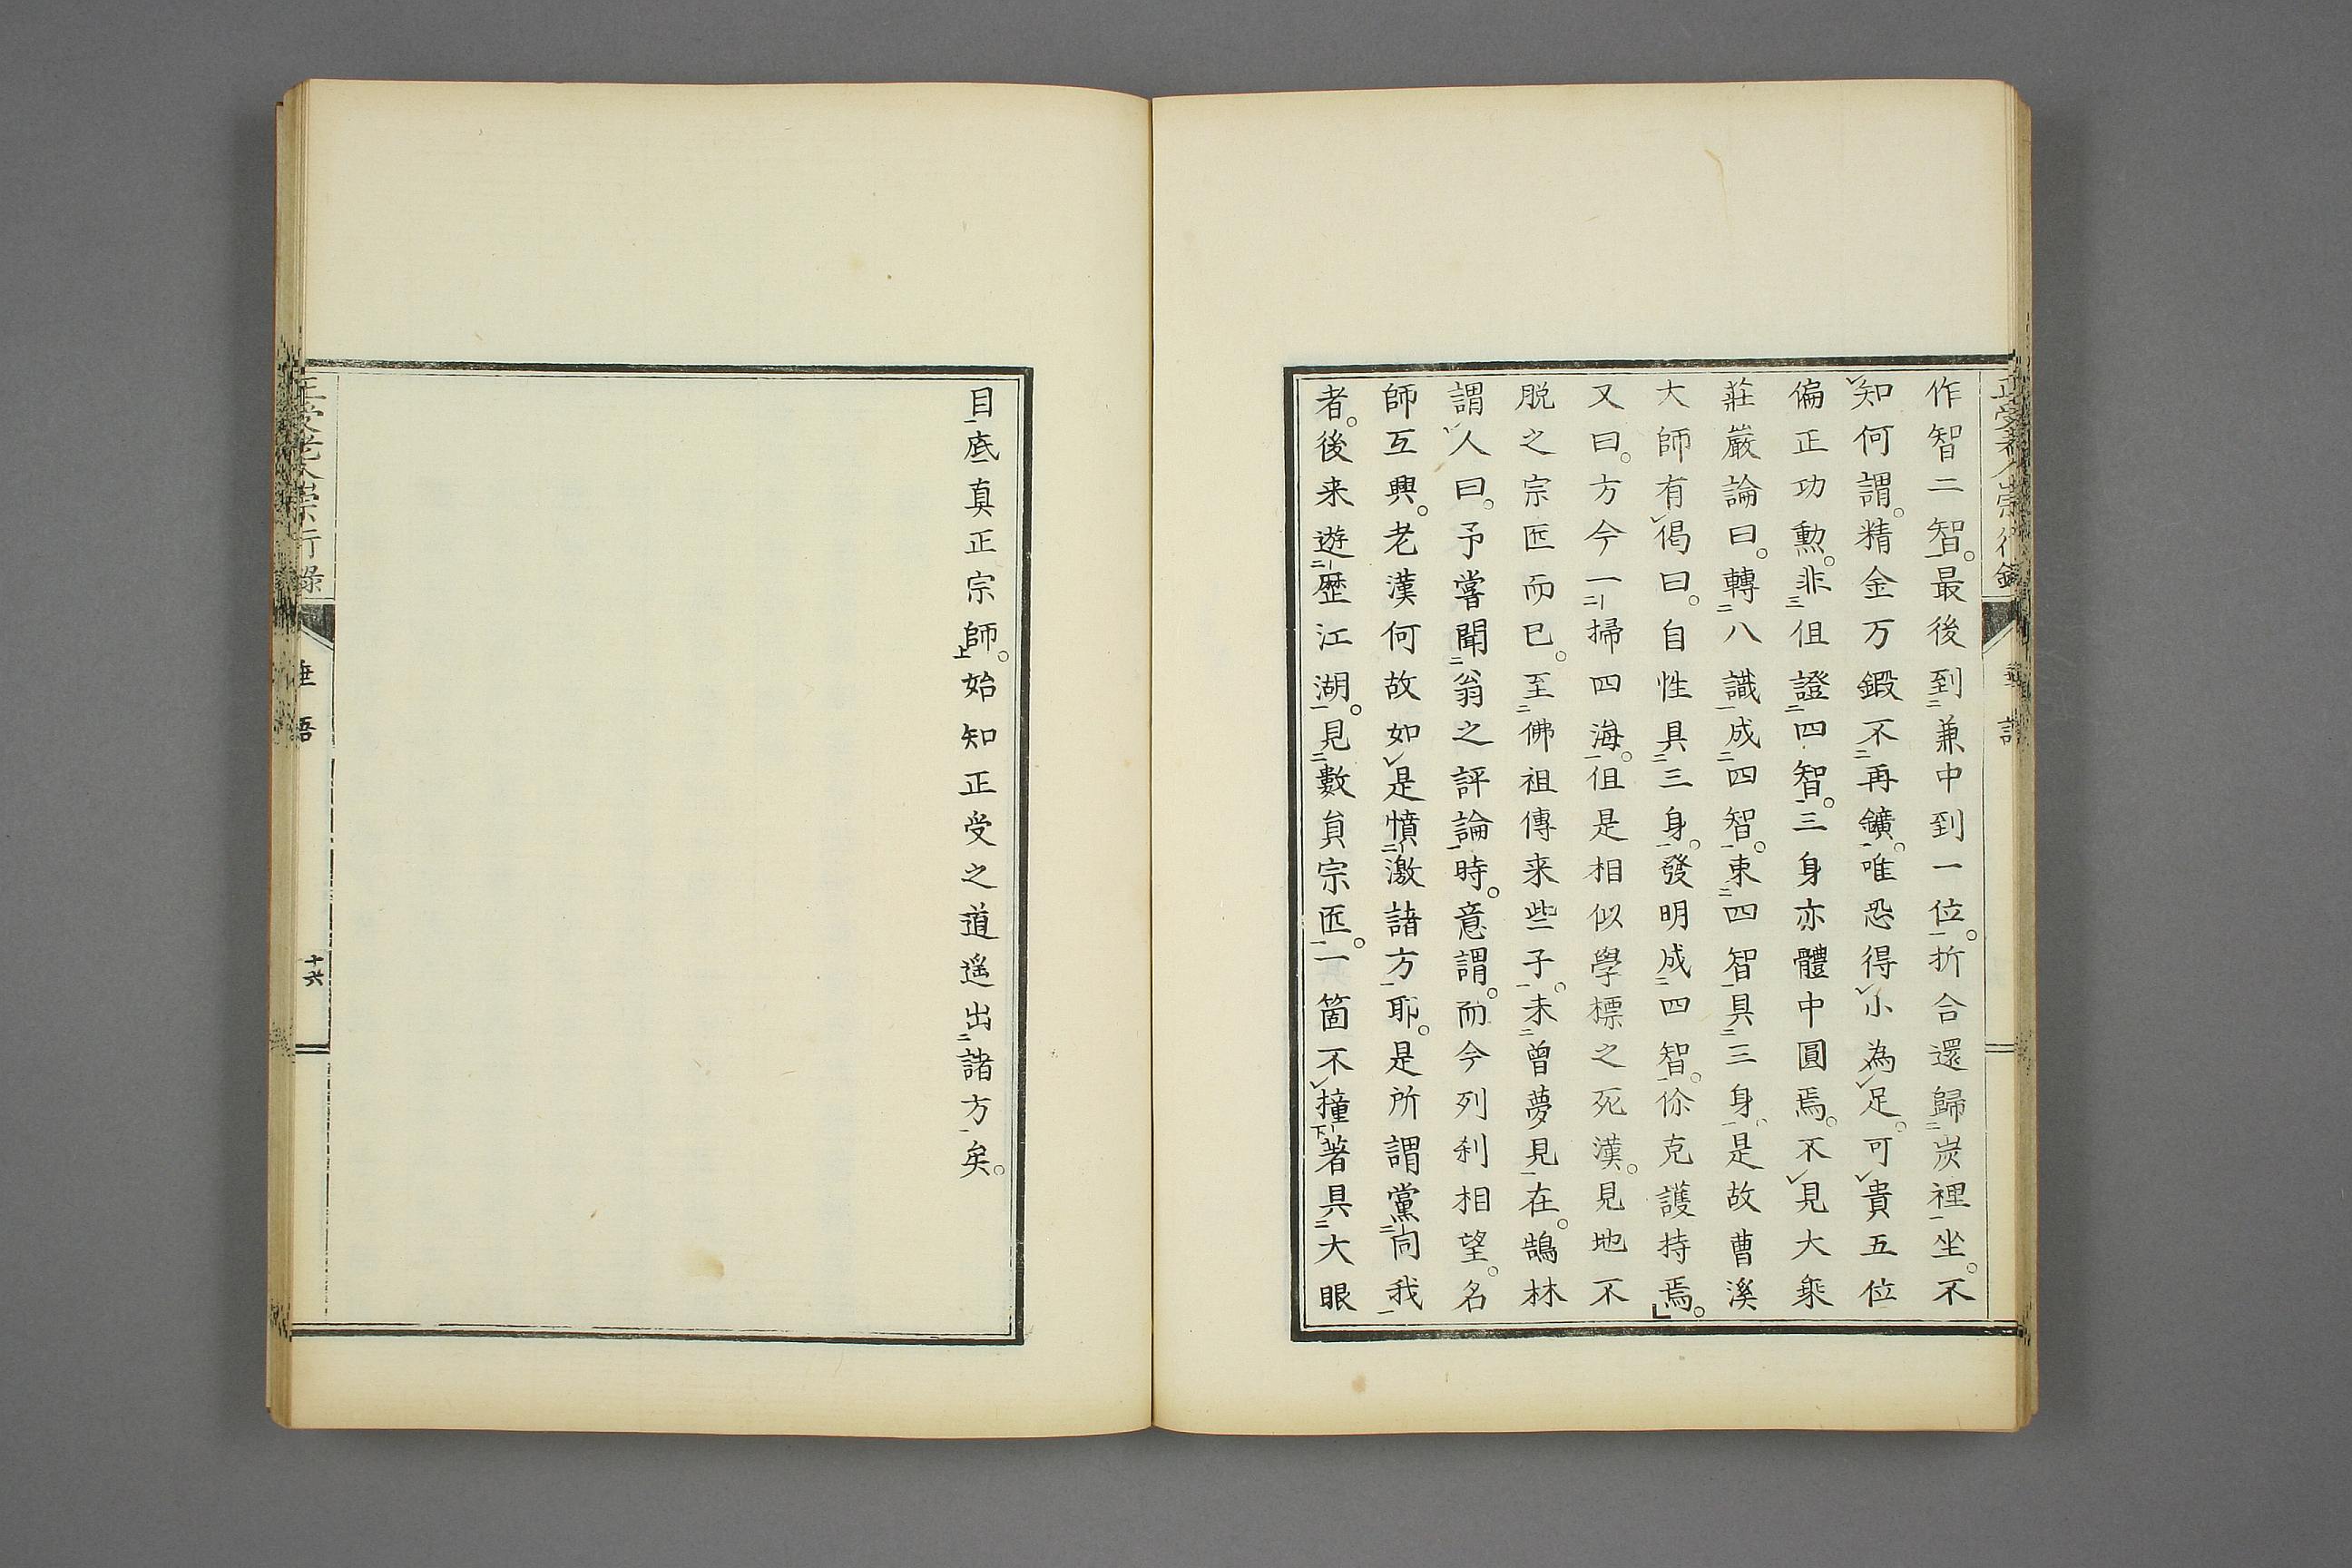 作智二智。最後到兼中到一位。折合還歸炭裡坐。不
知何謂。精金万鍛不再鑛。唯恐得小為足。可貴五位
偏正功勲。非但證四智。三身亦體中圓焉。不見大乗
莊嚴論曰。轉八識成四智。束四智具三身。是故曹溪
大師有偈曰。自性具三身。發明成四智。你克護持焉。
又曰。方今一掃四海。但是相似學標之死漢。見地不
脱之宗匠而已。至佛祖傳来些子。未曾夢見在。鵠林
謂人曰。予嘗聞翁之評論時。意謂。而今列刹相望。名
師互興。老漢何故如是憤激諸方耶。是所謂黨同我
者。後来遊歴江湖。見數員宗匠。一箇不撞著具大眼
目底真正宗師。始知正受之道遥出諸方矣。
正受老人崇行録
垂語
十六